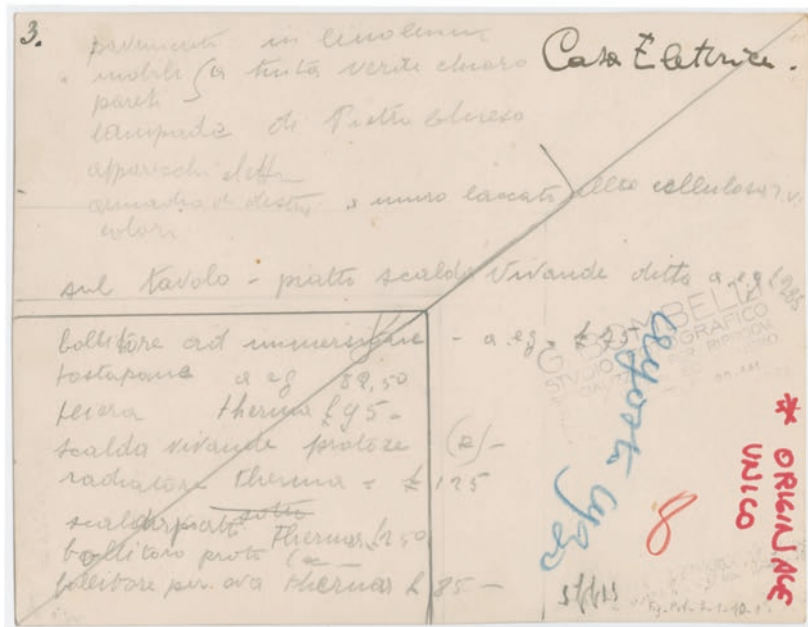 3.
Casa Elettrica.
pavimenti in linoleum
mobili a tinta verde chiaro
pareti
lampada di Pietro Chiesa
apparecchi elettr
armadio di destra a muro laccato alla cellulosa
colori
sul tavolo - piatto scalda vivande ditta a.e.g £ 285
bollitore ad immersione - a.eg. £ 75
tostapane a eg 82,50
teiera therma £ 95-
scalda vivande protose (a)-
radiatore therma = £ 125
scaldapiatti Therma £ 250
bollitore protos
bollitore per uova therma £ 85-
G. BOMBELLI
STUDIO FOTOGRAFICO
8
* ORIGINALE
UNICO